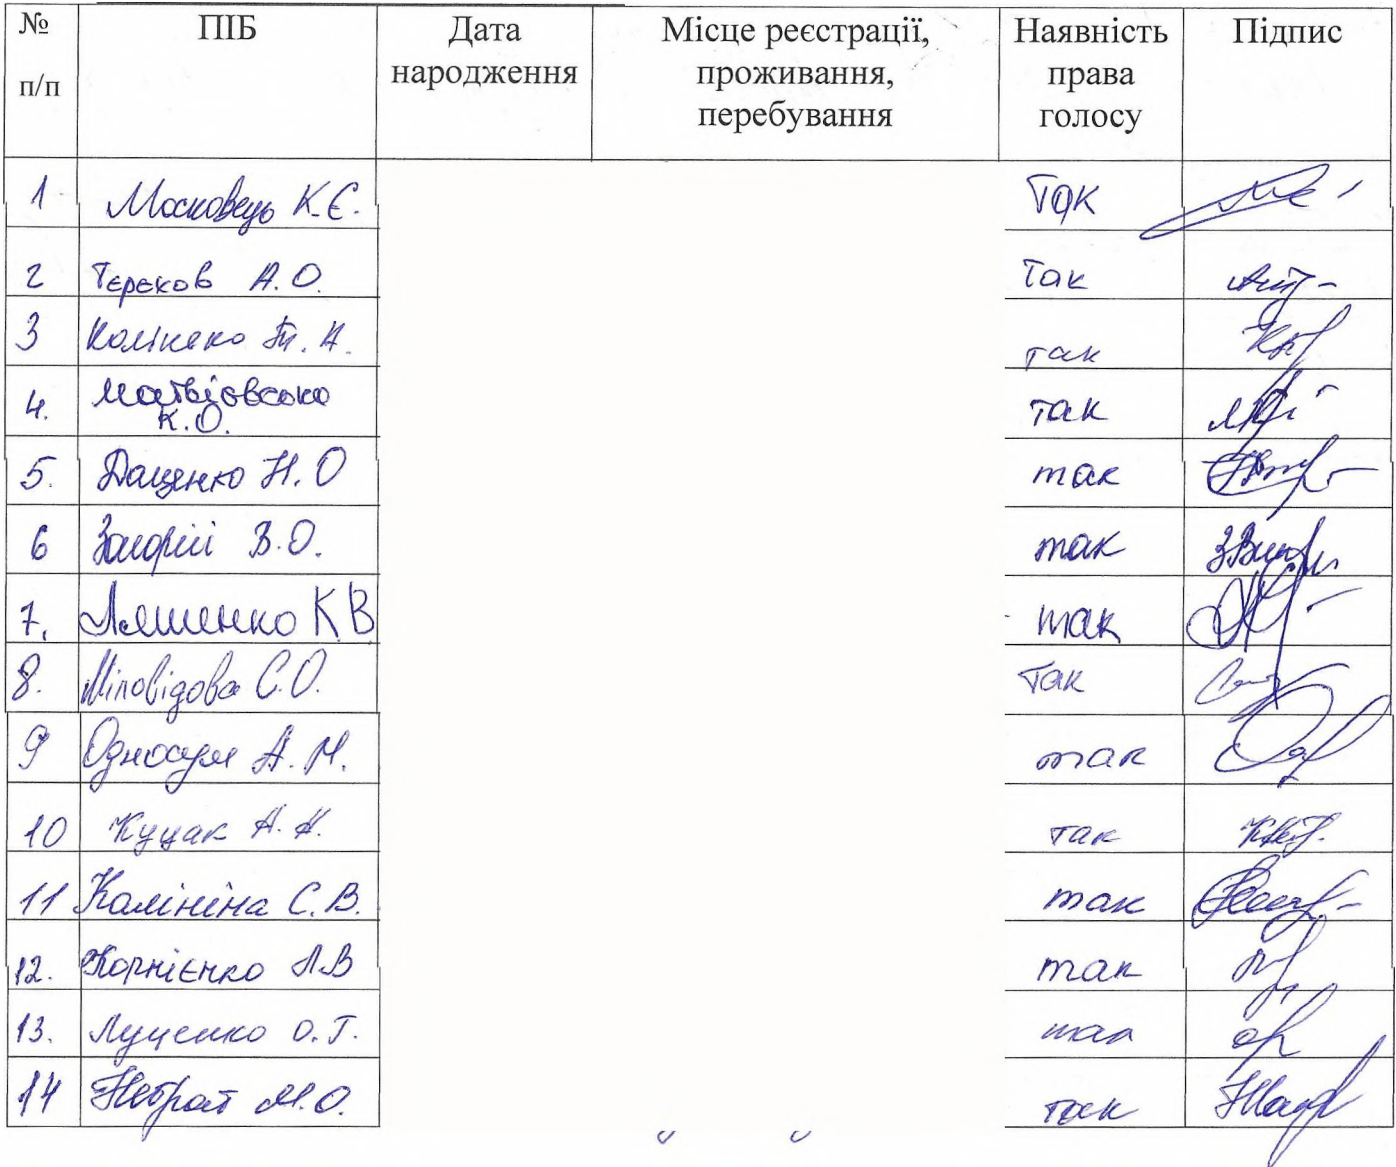 № п/п ПІБ Дата народження Місце реєстрації, проживання, перебування Наявність права голосу Підпис
1 Московець К.Є. Так
2 Терехов А.О. Так
3 Калінеко Т.А. так
4. Матвієвська К.О. так
5. Даценко Н.О так
6 Загорій В.О. так
7. Ляшенко К В так
8. Міловідова С.О. Так
9 А.М. так
10 Куцак А.А. так
11 Калініна С.В. так
12. Корнієнко Л В так
13. Луценко О.Г. так
14 М.О. так